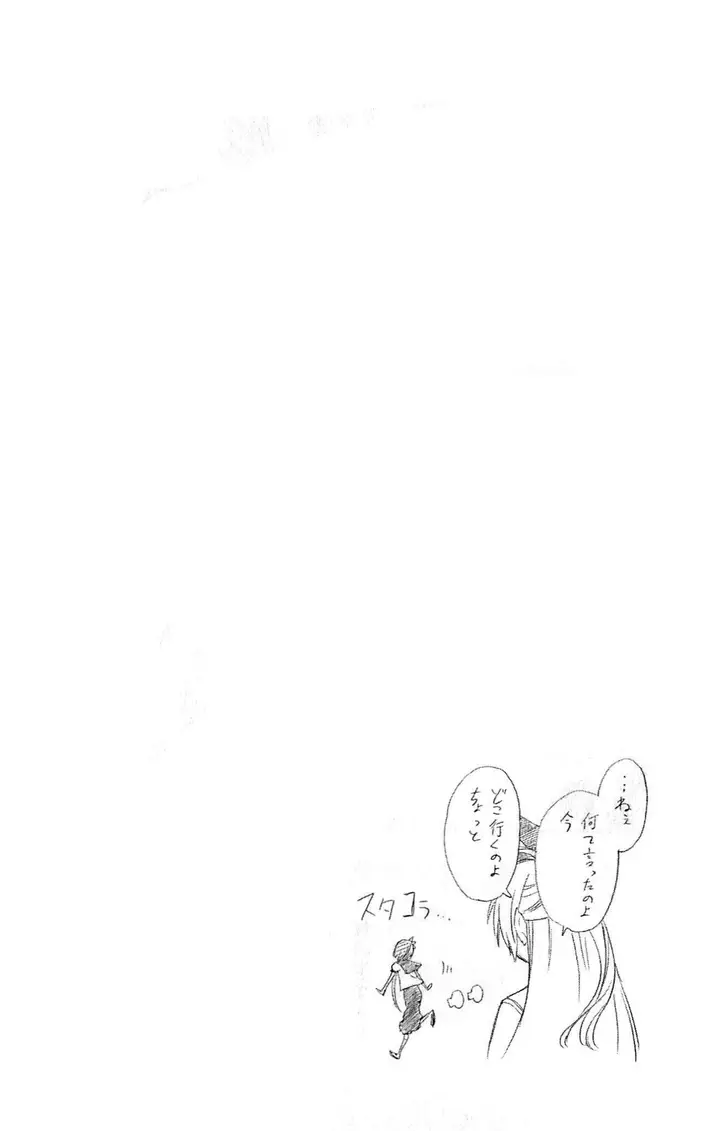 …ねぇ
何て言ったのよ
今
どこ行くのよ
ちょっと
スタコラ…